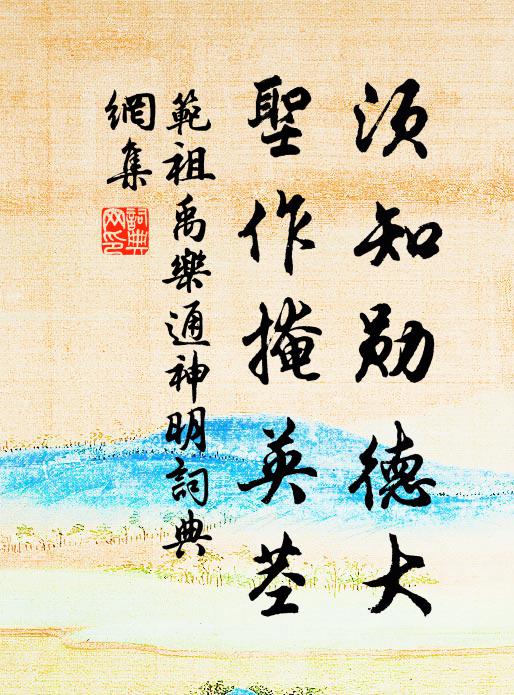 须知勋德大
聖作掩英茎
範祖禹樂通神明詞典
網集
詞典
网印